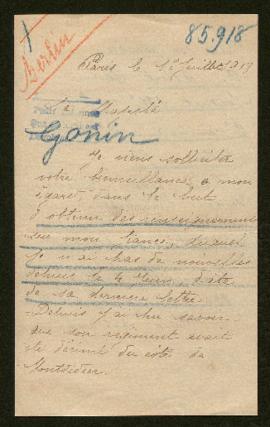 85.918
Berlin
Paris le 1er Juillet 1919
Sa Majesté
Gonin
Je viens solliciter
votre bienveillance a mon
égard, dans le but
d'obtenir des renseignements
sur mon fiancé, duquel
je n'ai pas de nouvelles
depuis le 4 date
de sa dernière lettre.
Depuis j'ai pu savoir
que son régiment avait
été décimé du côté de
Montdidier.